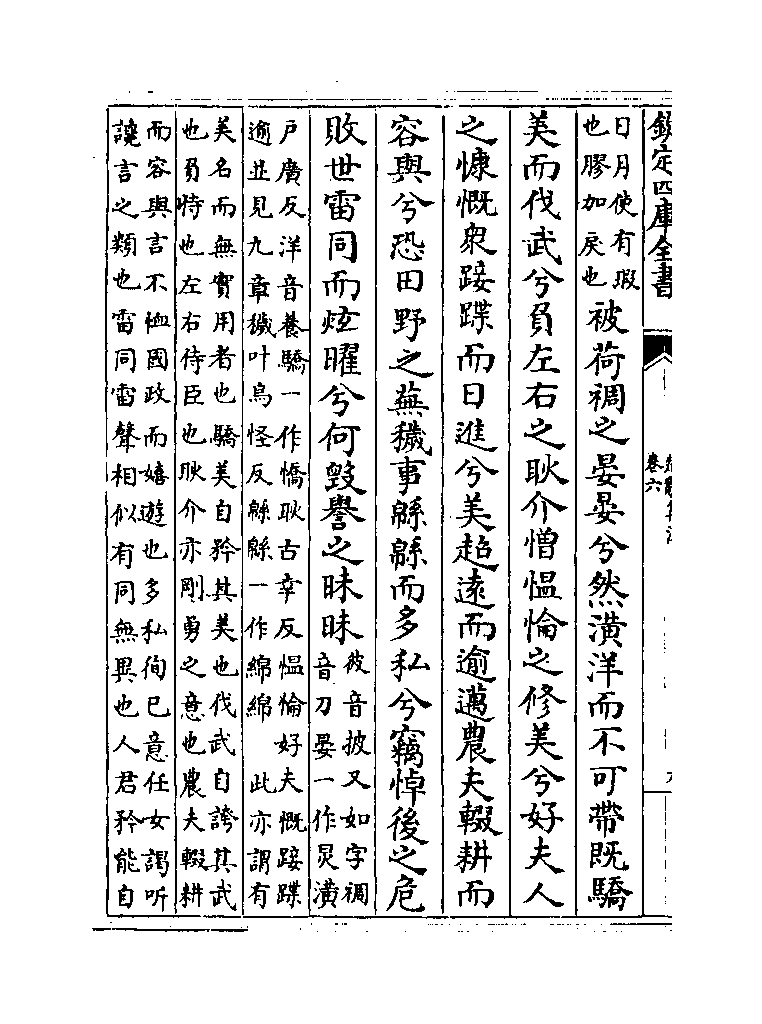 欽定四庫全書
卷六
日月使有瑕
也膠加戾也
被荷裯之晏晏兮然潢洋而不可帶既驕
美而伐武兮負左右之耿介憎愠惀之修美兮好夫人
之慷慨衆踥蹀而日進兮美超逺而逾邁農夫輟耕而
容與兮恐田野之蕪穢事緜緜而多私兮竊悼後之危
敗世雷同而炫曜兮何毀譽之昧昧
彼音披又如字裯
音刀晏一作炅潢
户廣反洋音養驕一作憍耿古幸反愠惀好夫慨踥蹀
逾並見九章穢叶烏怪反緜緜一作綿綿　此亦謂有
美名而無實用者也驕美自矜其美也伐武自誇其武
也負恃也左右侍臣也耿介亦剛勇之意也農夫輟耕
而容與言不恤國政而嬉遊也多私徇已意任女謁听
讒言之類也雷同雷聲相似有同無異也人君矜能自